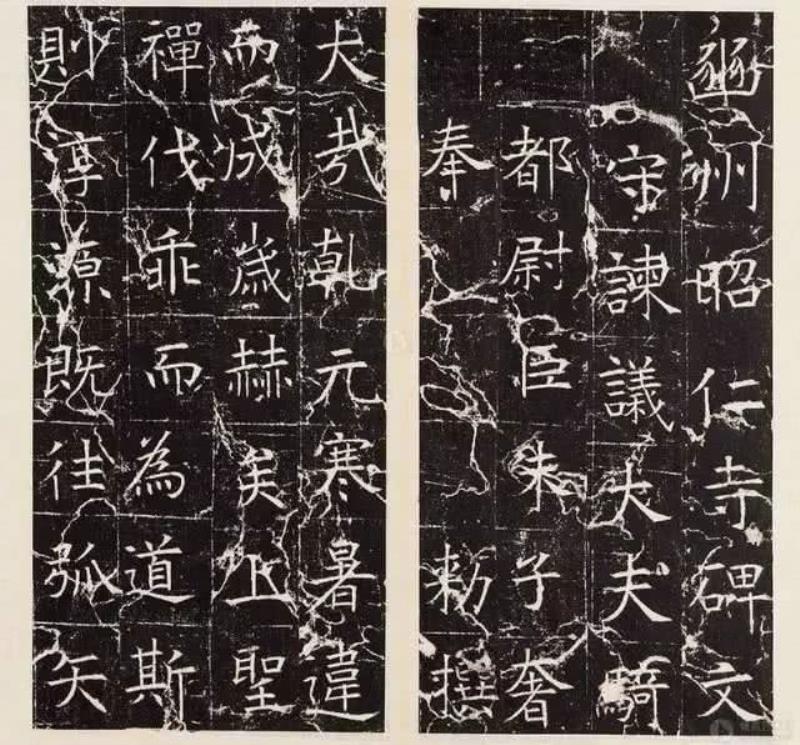 豳州昭仁寺碑文
守諫議大夫騎
都尉臣朱子奢
奉勑撰
大哉乾元寒暑違
而成歲赫矣上聖
禪伐乖而為道斯
則淳源既往弧矢